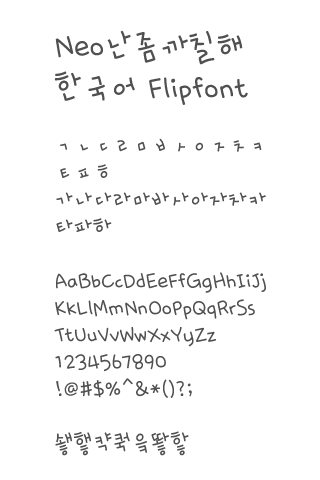 Neo난좀까칠해
한국어 Flipfont
ㄱ ㄴ ㄷ ㄹ ㅁ ㅂ ㅅ ㅇ ㅈ ㅊ ㅋ
ㅌ ㅍ ㅎ
가나다라마바사아자차카
타파하
AaBbCcDdEeFfGgHhIiJj
KkLlMmNnOoPpQqRrSs
TtUuVvWwXxYyZz
1234567890
!@#$%^&*()?;